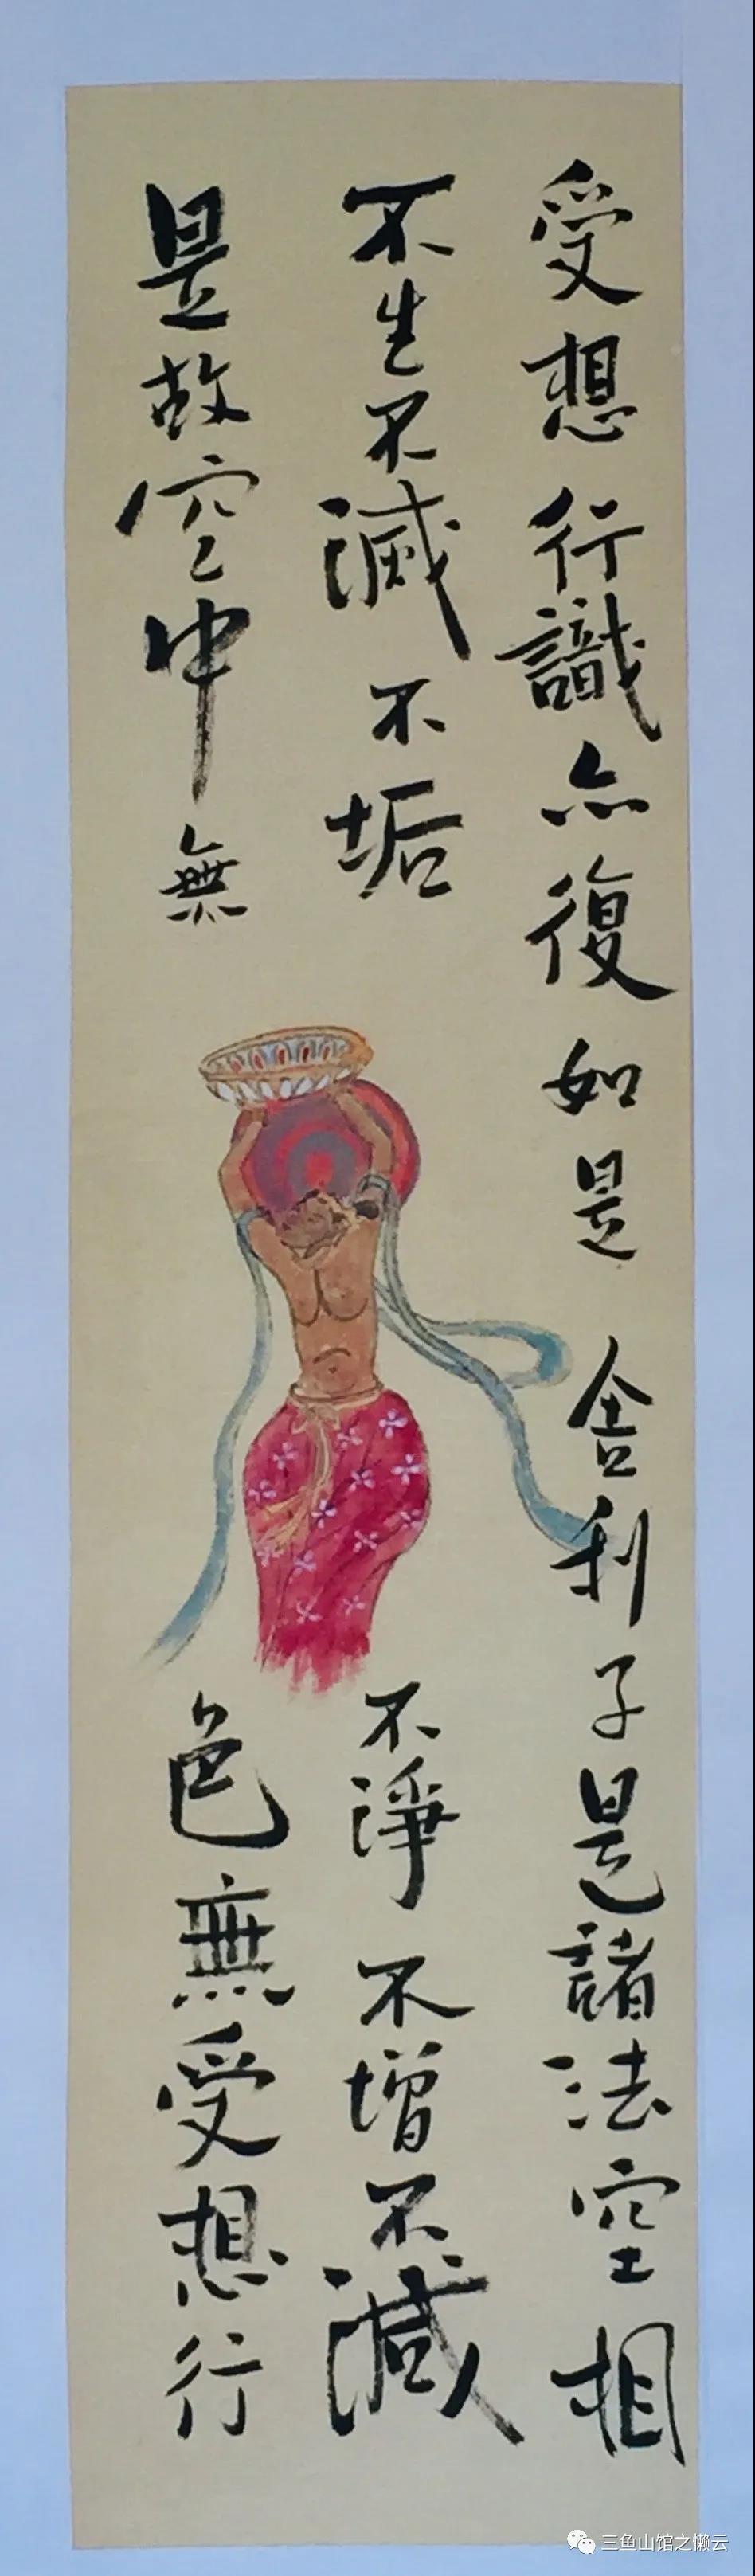 受想行識亦復如是舍利子是諸法空相
不生不滅不垢不淨不增不減
是故空中無色無受想行
三鱼山馆之懒云